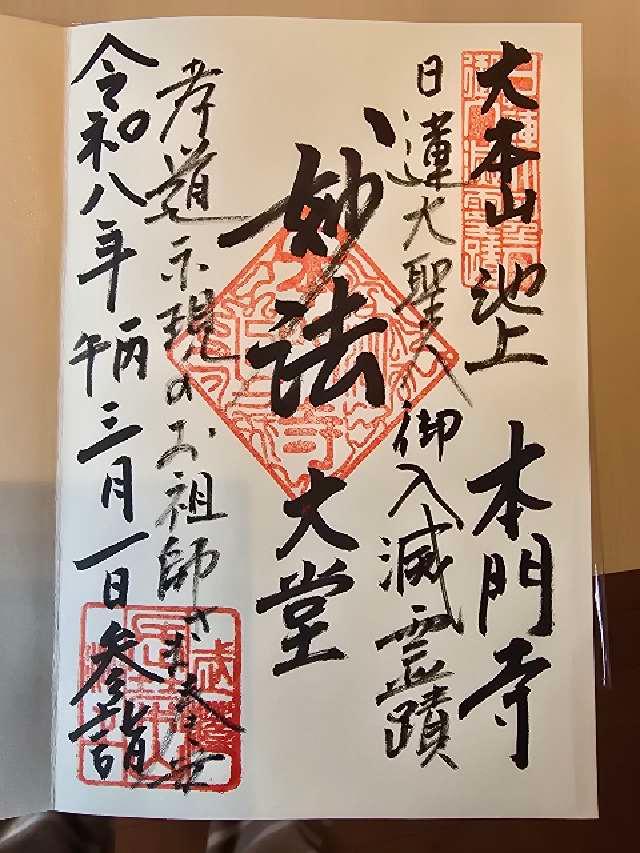 大本山 池上 本門寺
日蓮大聖人御入滅霊蹟
妙法
大堂
孝道示現のお祖師さま奉安
令和八年丙午三月一日参詣